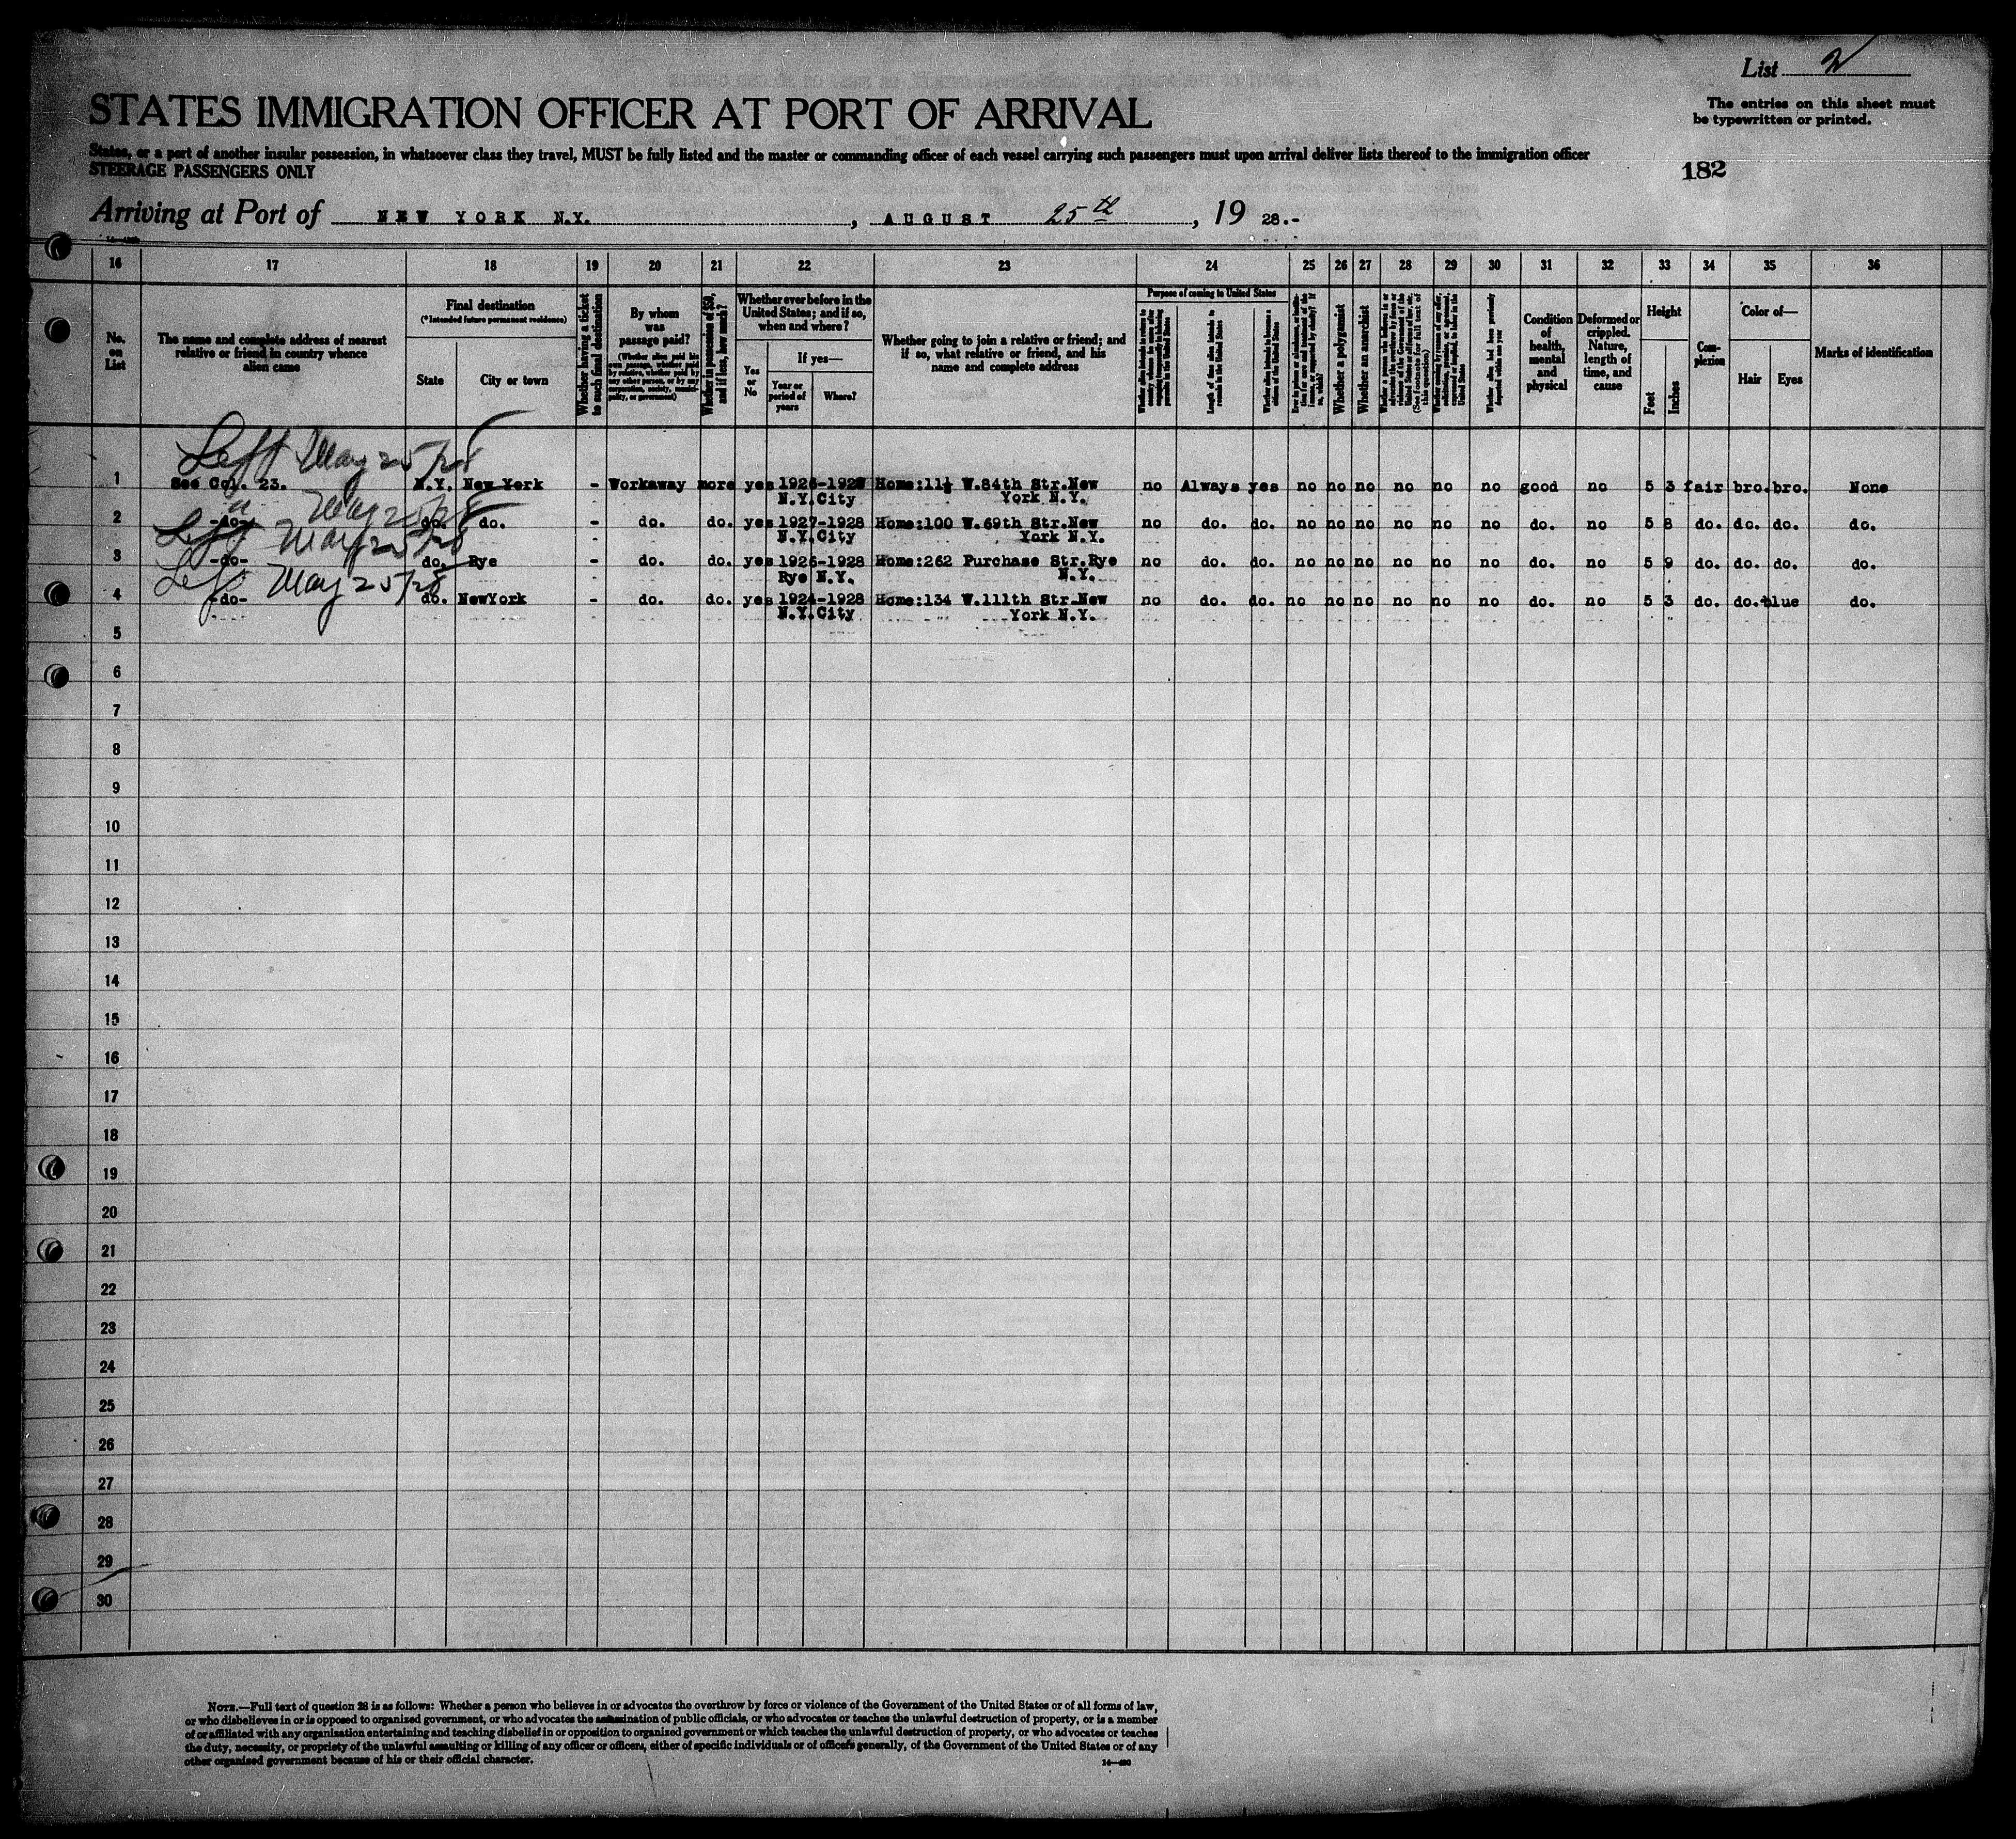 List 2
STATES IMMIGRATION OFFICER AT PORT OF ARRIVAL
The entries on this sheet must
be typewritten or printed.
States, or a port of another insular possession, in whatsoever class they travel, MUST be fully listed and the master or commanding officer of each vessel carrying such passengers must upon arrival deliver lists thereof to the immigration officer
STEERAGE PASSENGERS ONLY
182
Arriving at Port of NEW YORK N.Y. , AUGUST 25th , 19 28.-
16 17 18 19 20 21 22 23 24 25 26 27 28 29 30 31 32 33 34 35 36
No. on List
The name and complete address of nearest relative or friend in country whence alien came
Final destination
(*Intended future permanent residence)
State
City or town
Whether having a ticket to such final destination
By whom was passage paid?
(Whether alien paid his own passage, whether paid by relative, whether paid by any other person, or by any corporation, society, municipality, or government)
Whether in possession of $50, and if less, how much?
Whether ever before in the United States; and if so, when and where?
Yes or No
If yes—
Year or period of years
Where?
Whether going to join a relative or friend; and if so, what relative or friend, and his name and complete address
Purpose of coming to United States
Length of time alien intends to remain in the United States
Whether alien intends to become a citizen of the United States
Whether a polygamist
Whether an anarchist
Whether alien had been previously deported within one year
Condition of health, mental and physical
Deformed or crippled. Nature, length of time, and cause
Height
Feet
Inches
Complexion
Color of—
Hair
Eyes
Marks of identification
Left May 25/28
1 See Col. 23. N.Y. New York - Workaway more yes 1926-1927 Home:11½ W.84th Str.New no Always yes no no no no no no good no 5 3 fair bro. bro. None
N.Y.City York N.Y.
" May 25/28
2 -do- do. do. - do. do. yes 1927-1928 Home:100 W.69th Str.New no do. do. no no no no no no do. no 5 8 do. do. do. do.
N.Y.City York N.Y.
Left May 25/28
3 -do- do. Rye - do. do. yes 1926-1928 Home:262 Purchase Str.Rye no do. do. no no no no no no do. no 5 9 do. do. do. do.
Rye N.Y. N.Y.
Left May 25/28
4 -do- do. NewYork - do. do. yes 1924-1928 Home:134 W.111th Str.New no do. do. no no no no no no do. no 5 3 do. do. blue do.
N.Y.City York N.Y.
5
6
7
8
9
10
11
12
13
14
15
16
17
18
19
20
21
22
23
24
25
26
27
28
29
30
NOTE.—Full text of question 28 is as follows: Whether a person who believes in or advocates the overthrow by force or violence of the Government of the United States or of all forms of law,
or who disbelieves in or is opposed to organized government, or who advocates the assassination of public officials, or who advocates or teaches the unlawful destruction of property, or is a member
of or affiliated with any organization entertaining and teaching disbelief in or opposition to organized government or which teaches the unlawful destruction of property, or who advocates or teaches
the duty, necessity, or propriety of the unlawful assaulting or killing of any officer or officers, either of specific individuals or of officers generally, of the Government of the United States or of any
other organized government because of his or their official character.